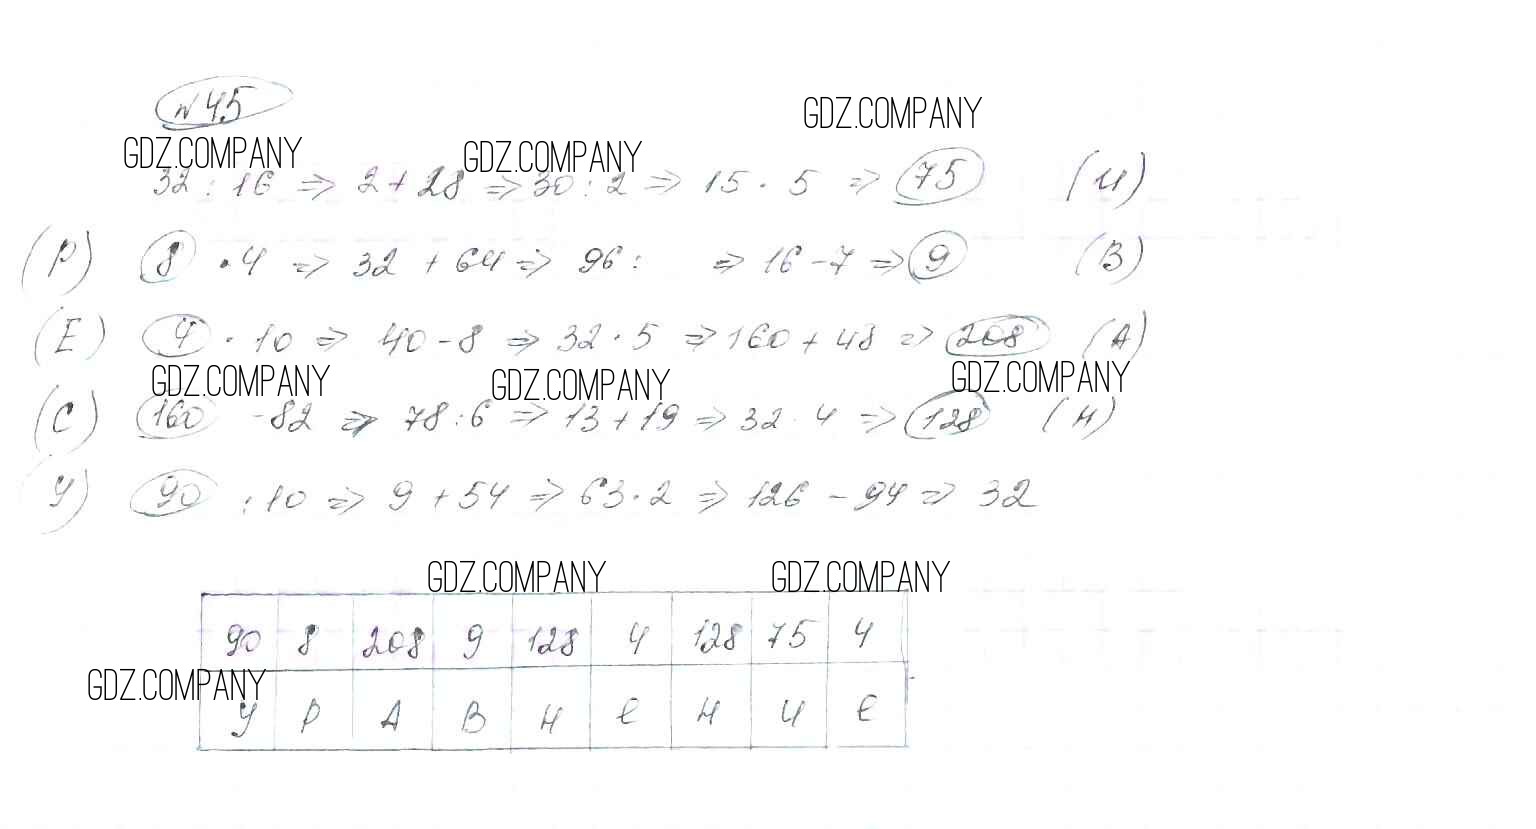 №45
GDZ.COMPANY
GDZ.COMPANY GDZ.COMPANY
32 : 16 ⇒ 2 + 28 ⇒ 30 : 2 ⇒ 15 · 5 ⇒ 75 (И)
(Р) 8 · 4 ⇒ 32 + 64 ⇒ 96 : ⇒ 16 - 7 ⇒ 9 (В)
(Е) 4 · 10 ⇒ 40 - 8 ⇒ 32 · 5 ⇒ 160 + 48 ⇒ 208 (А)
GDZ.COMPANY GDZ.COMPANY GDZ.COMPANY
(С) 160 - 82 ⇒ 78 : 6 ⇒ 13 + 19 ⇒ 32 · 4 ⇒ 128 (Н)
(У) 90 : 10 ⇒ 9 + 54 ⇒ 63 · 2 ⇒ 126 - 94 ⇒ 32
GDZ.COMPANY GDZ.COMPANY
90 8 208 9 128 4 128 75 4
GDZ.COMPANY
У Р А В Н е Н И е